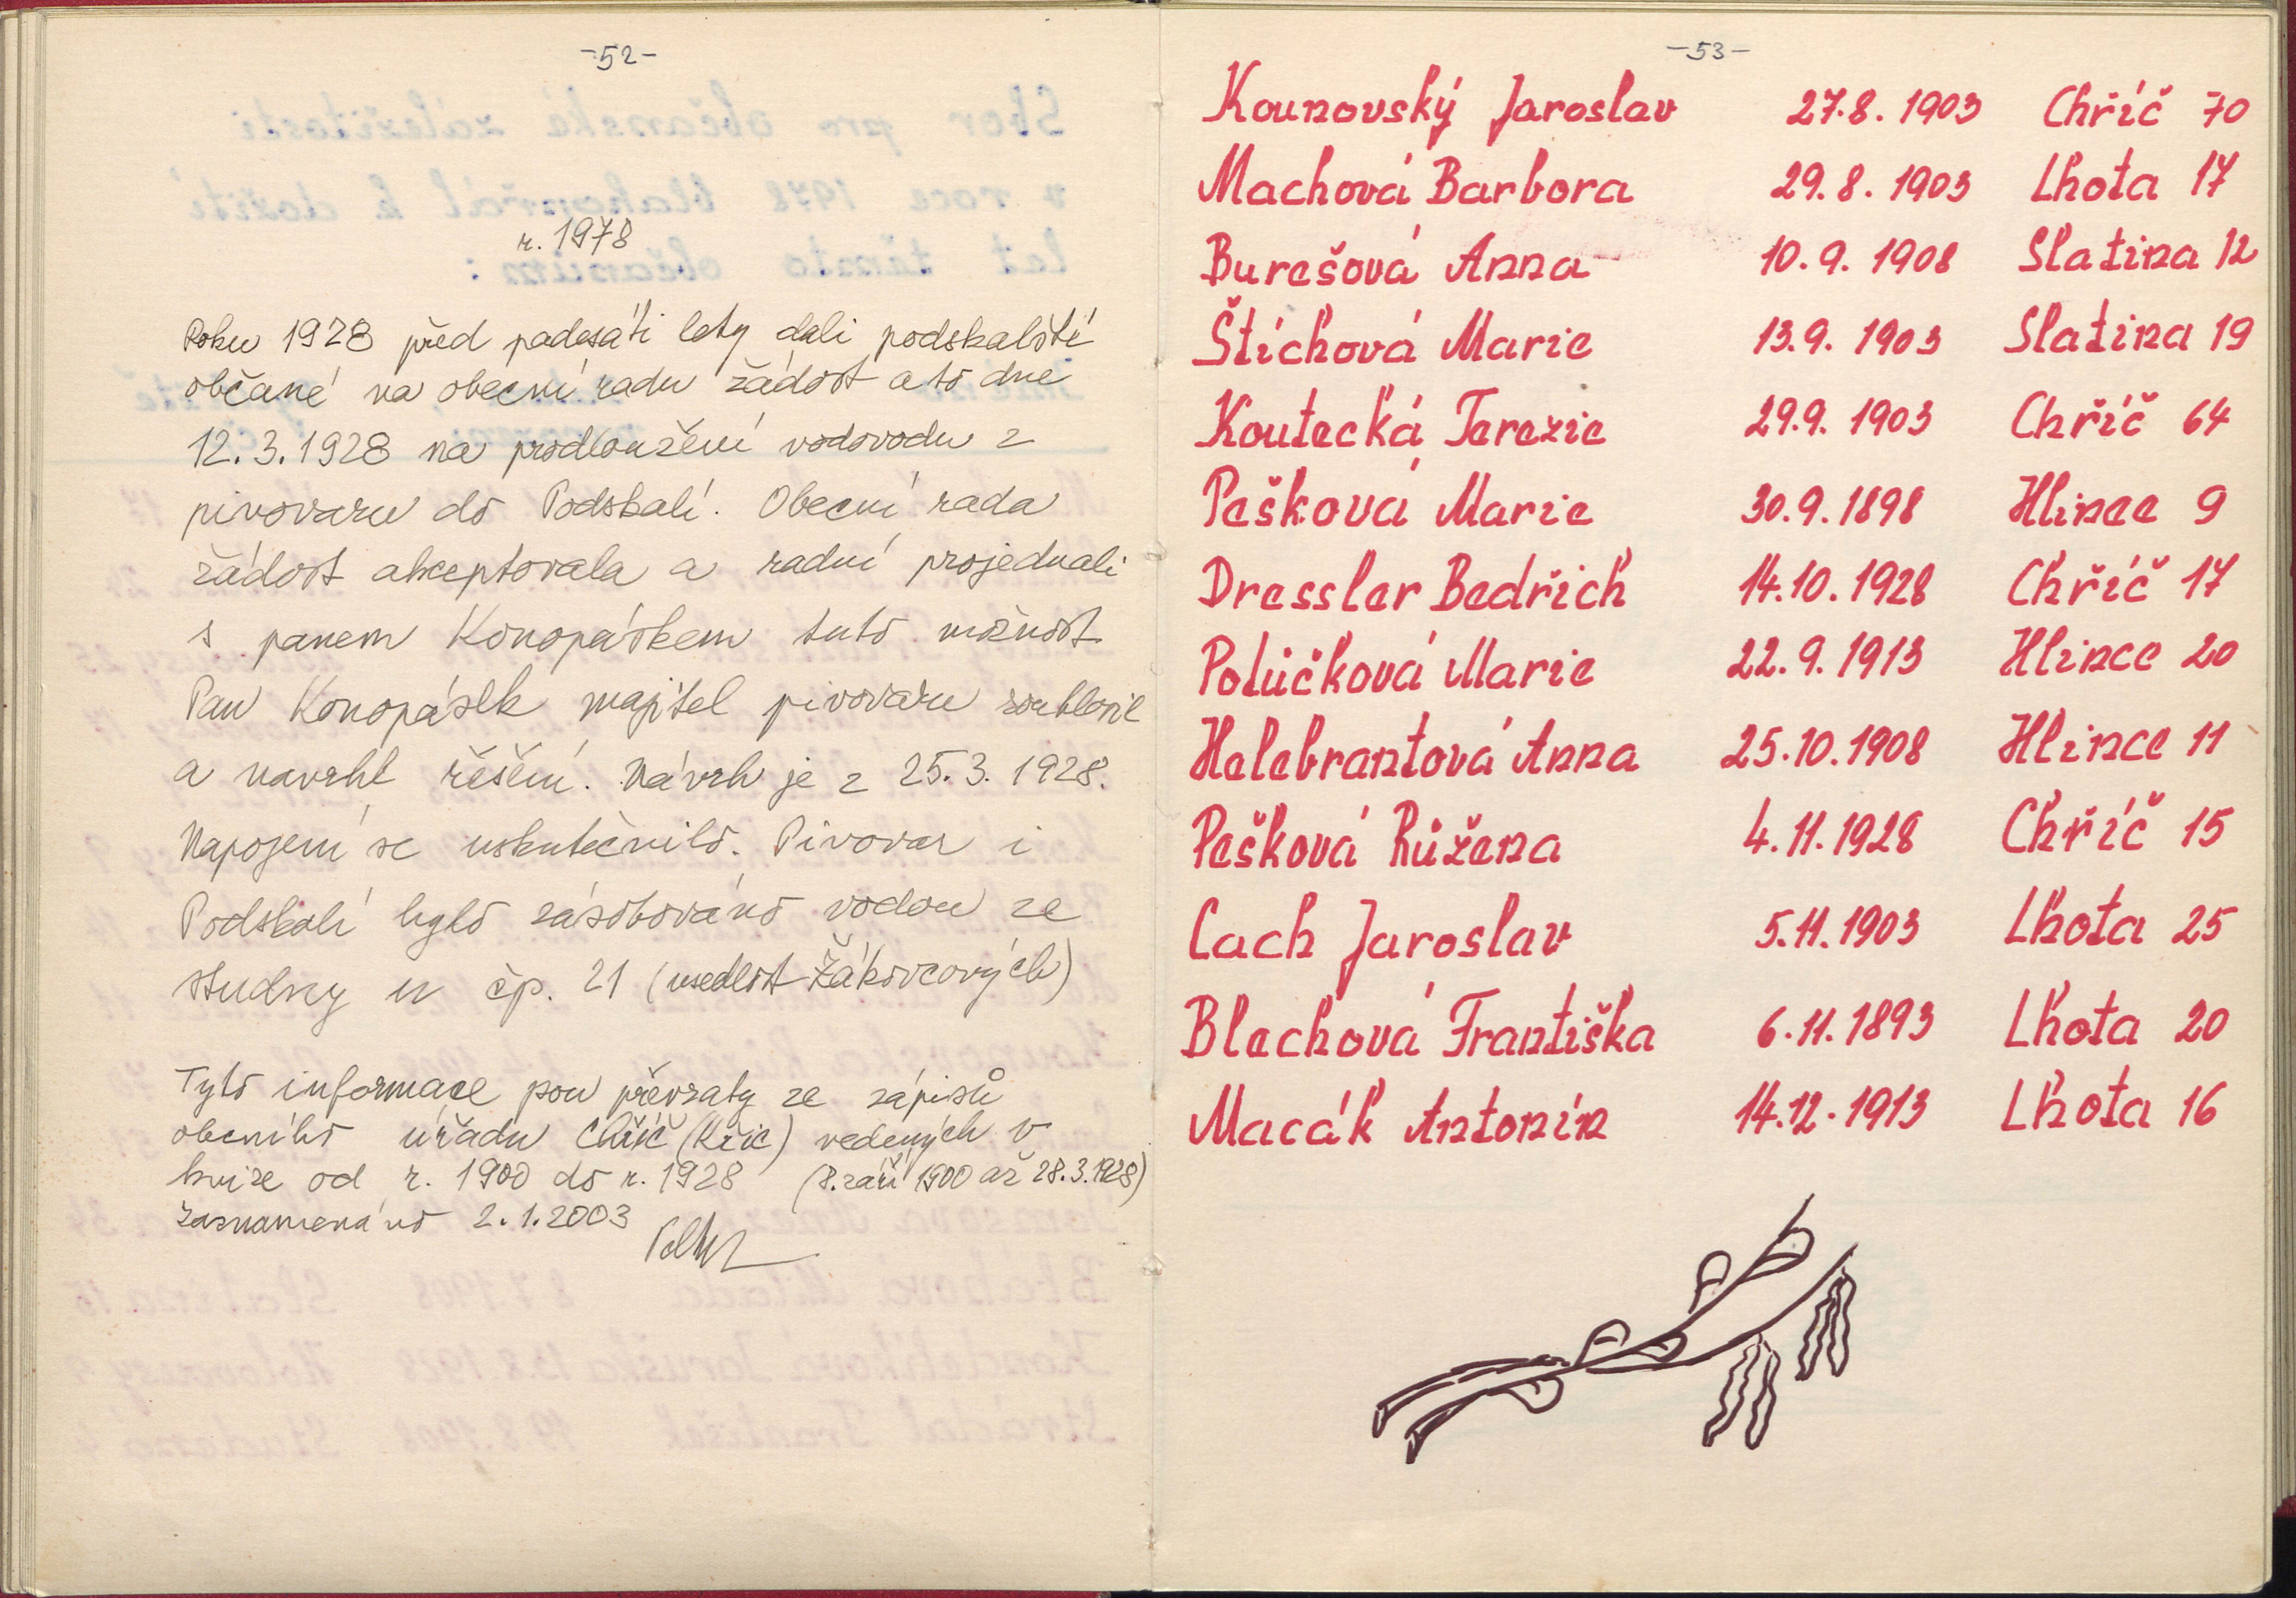 -52-
r. 1978
Roku 1928 před padesáti lety dali podskalští
občané na obecní radu žádost a to dne
12.3.1928 na prodloužení vodovodu z
pivovaru do Podskalí. Obecní rada
žádost akceptovala a radní projednali
s panem Konopáskem tuto možnost.
Pan Konopásek majitel pivovaru souhlasil
a navrhl řěšění. Návrh je z 25.3.1928.
Napojení se uskutečnilo. Pivovar i
Podskalí bylo zásobováno vodou ze
studny u čp. 21 (usedlost Žákovcových)
Tyto informace jsou převzaty ze zápisů
obecního úřadu Chříč (Křič) vedených v
knize od r. 1900 do r. 1928 (8. září 1900 až 28.3.1928)
Zaznamenáno 2.1.2003
-53-
Kounovský Jaroslav 27.8.1903 Chříč 70
Machová Barbora 29.8.1903 Lhota 17
Burešová Anna 10.9.1908 Slatina 12
Štíchová Marie 13.9.1903 Slatina 19
Koutecká Terezie 29.9.1903 Chříč 64
Pešková Marie 30.9.1898 Hlince 9
Dressler Bedřich 14.10.1928 Chříč 17
Polúčková Marie 22.9.1913 Hlince 20
Helebrantová Anna 25.10.1908 Hlince 11
Pešková Růžena 4.11.1928 Chříč 15
Cach Jaroslav 5.11.1903 Lhota 25
Blechová Františka 6.11.1893 Lhota 20
Macák Antonín 14.12.1913 Lhota 16